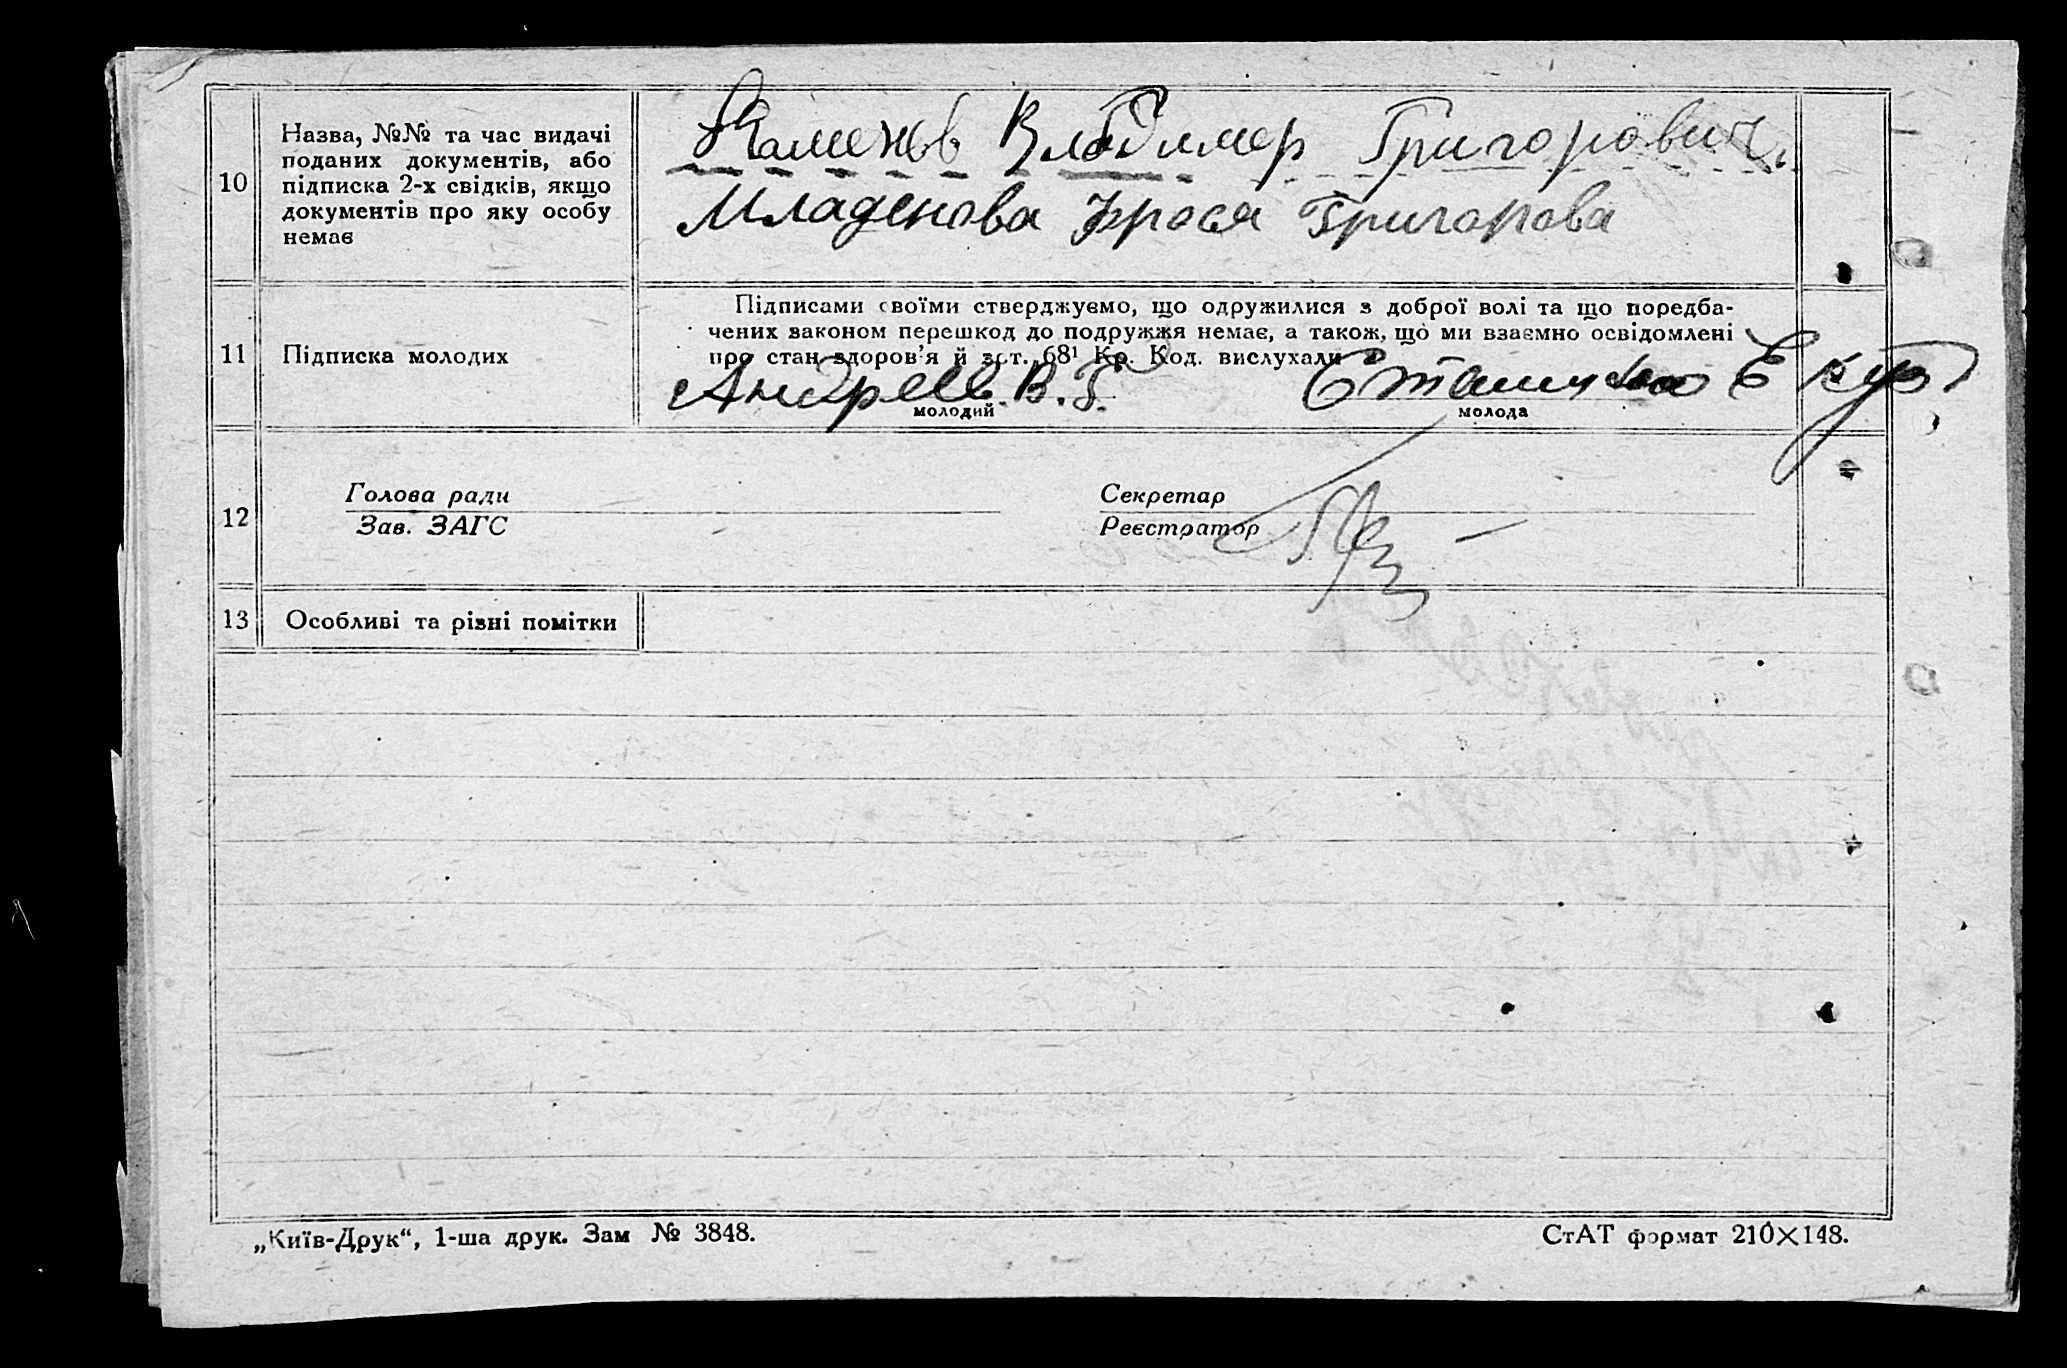 10
Назва, №№ та час видачі
поданих документів, або
підписка 2-х свідків, якщо
документів про яку особу
немає
Владимер Григорович.
Младенова Фрося Григорова
11
Підписка молодих
Підписами своїми стверджуємо, що одружилися з доброї волі та що поредба-
чених законом перешкод до подружжя немає, а також, що ми взаємно освідомлені
про стан здоров'я й зст. 68¹ Кр. Код. вислухали
Андреев В. Г.
молодий
молода
12
Голова ради
Зав. ЗАГС
Секретар
Реєстратор
13
Особливі та різні помітки
„Київ-Друк“, 1-ша друк. Зам № 3848.
СтАТ формат 210×148.